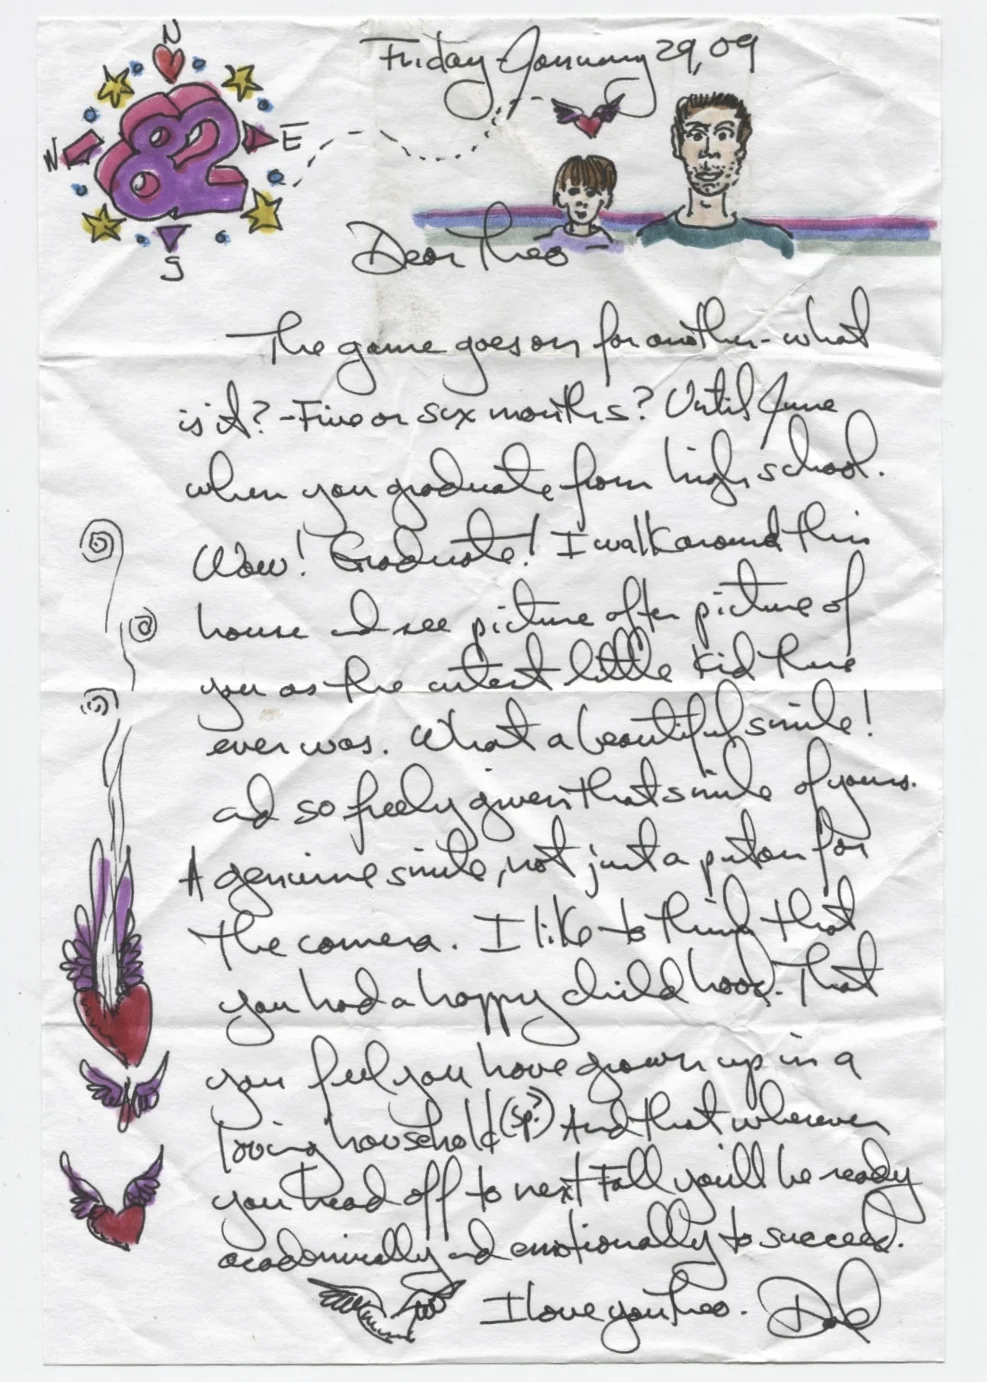 N
Friday January 29, 09
82
W
E
S
Dear Theo
The game goes on for another - what
is it? - Five or six months? Until June
when you graduate from high school.
Wow! Graduate! I walk around this
house and see picture after picture of
you as the cutest little kid there
ever was. What a beautiful smile!
and so freely given that smile of yours.
A genuine smile, not just a put on for
the camera. I like to think that
you had a happy childhood. That
you feel you have grown up in a
loving household (sp?) And that wherever
you head off to next Fall you'll be ready
academically and emotionally to succeed.
I love you Theo. Dad